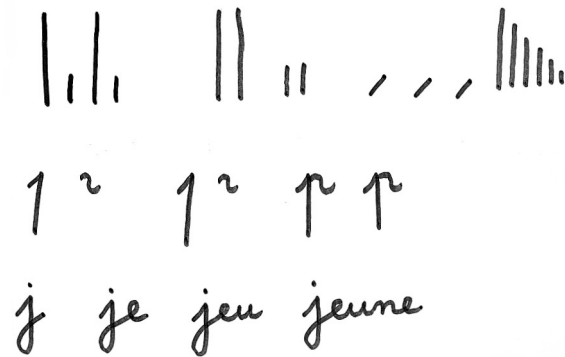 p p
j je jeu jeune